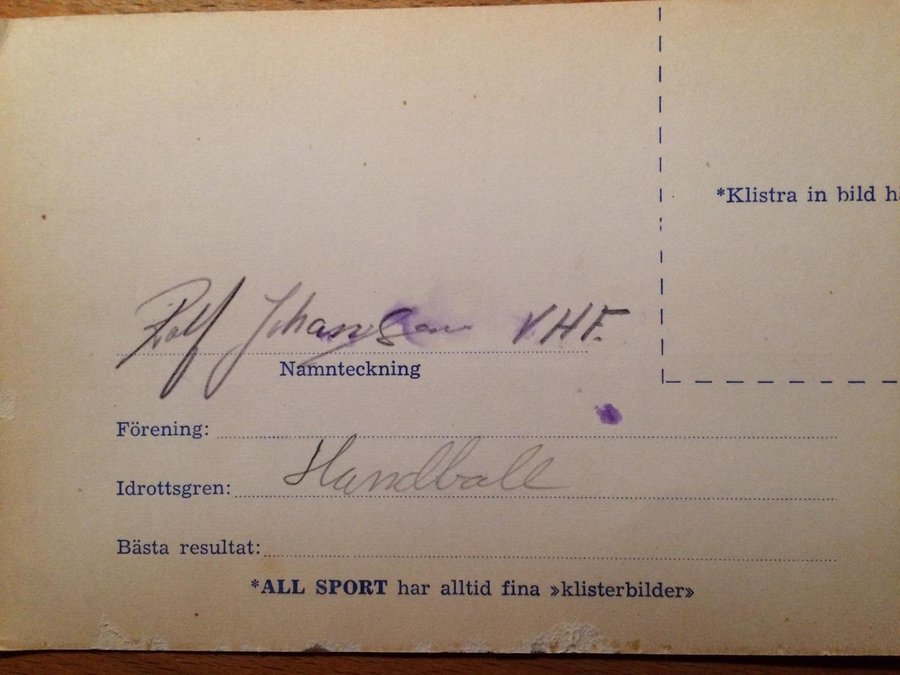 *Klistra in bild
Rolf Johansson VHF.
Namnteckning
Förening:
Idrottsgren: Handball
Bästa resultat:
*ALL SPORT har alltid fina »klisterbilder»